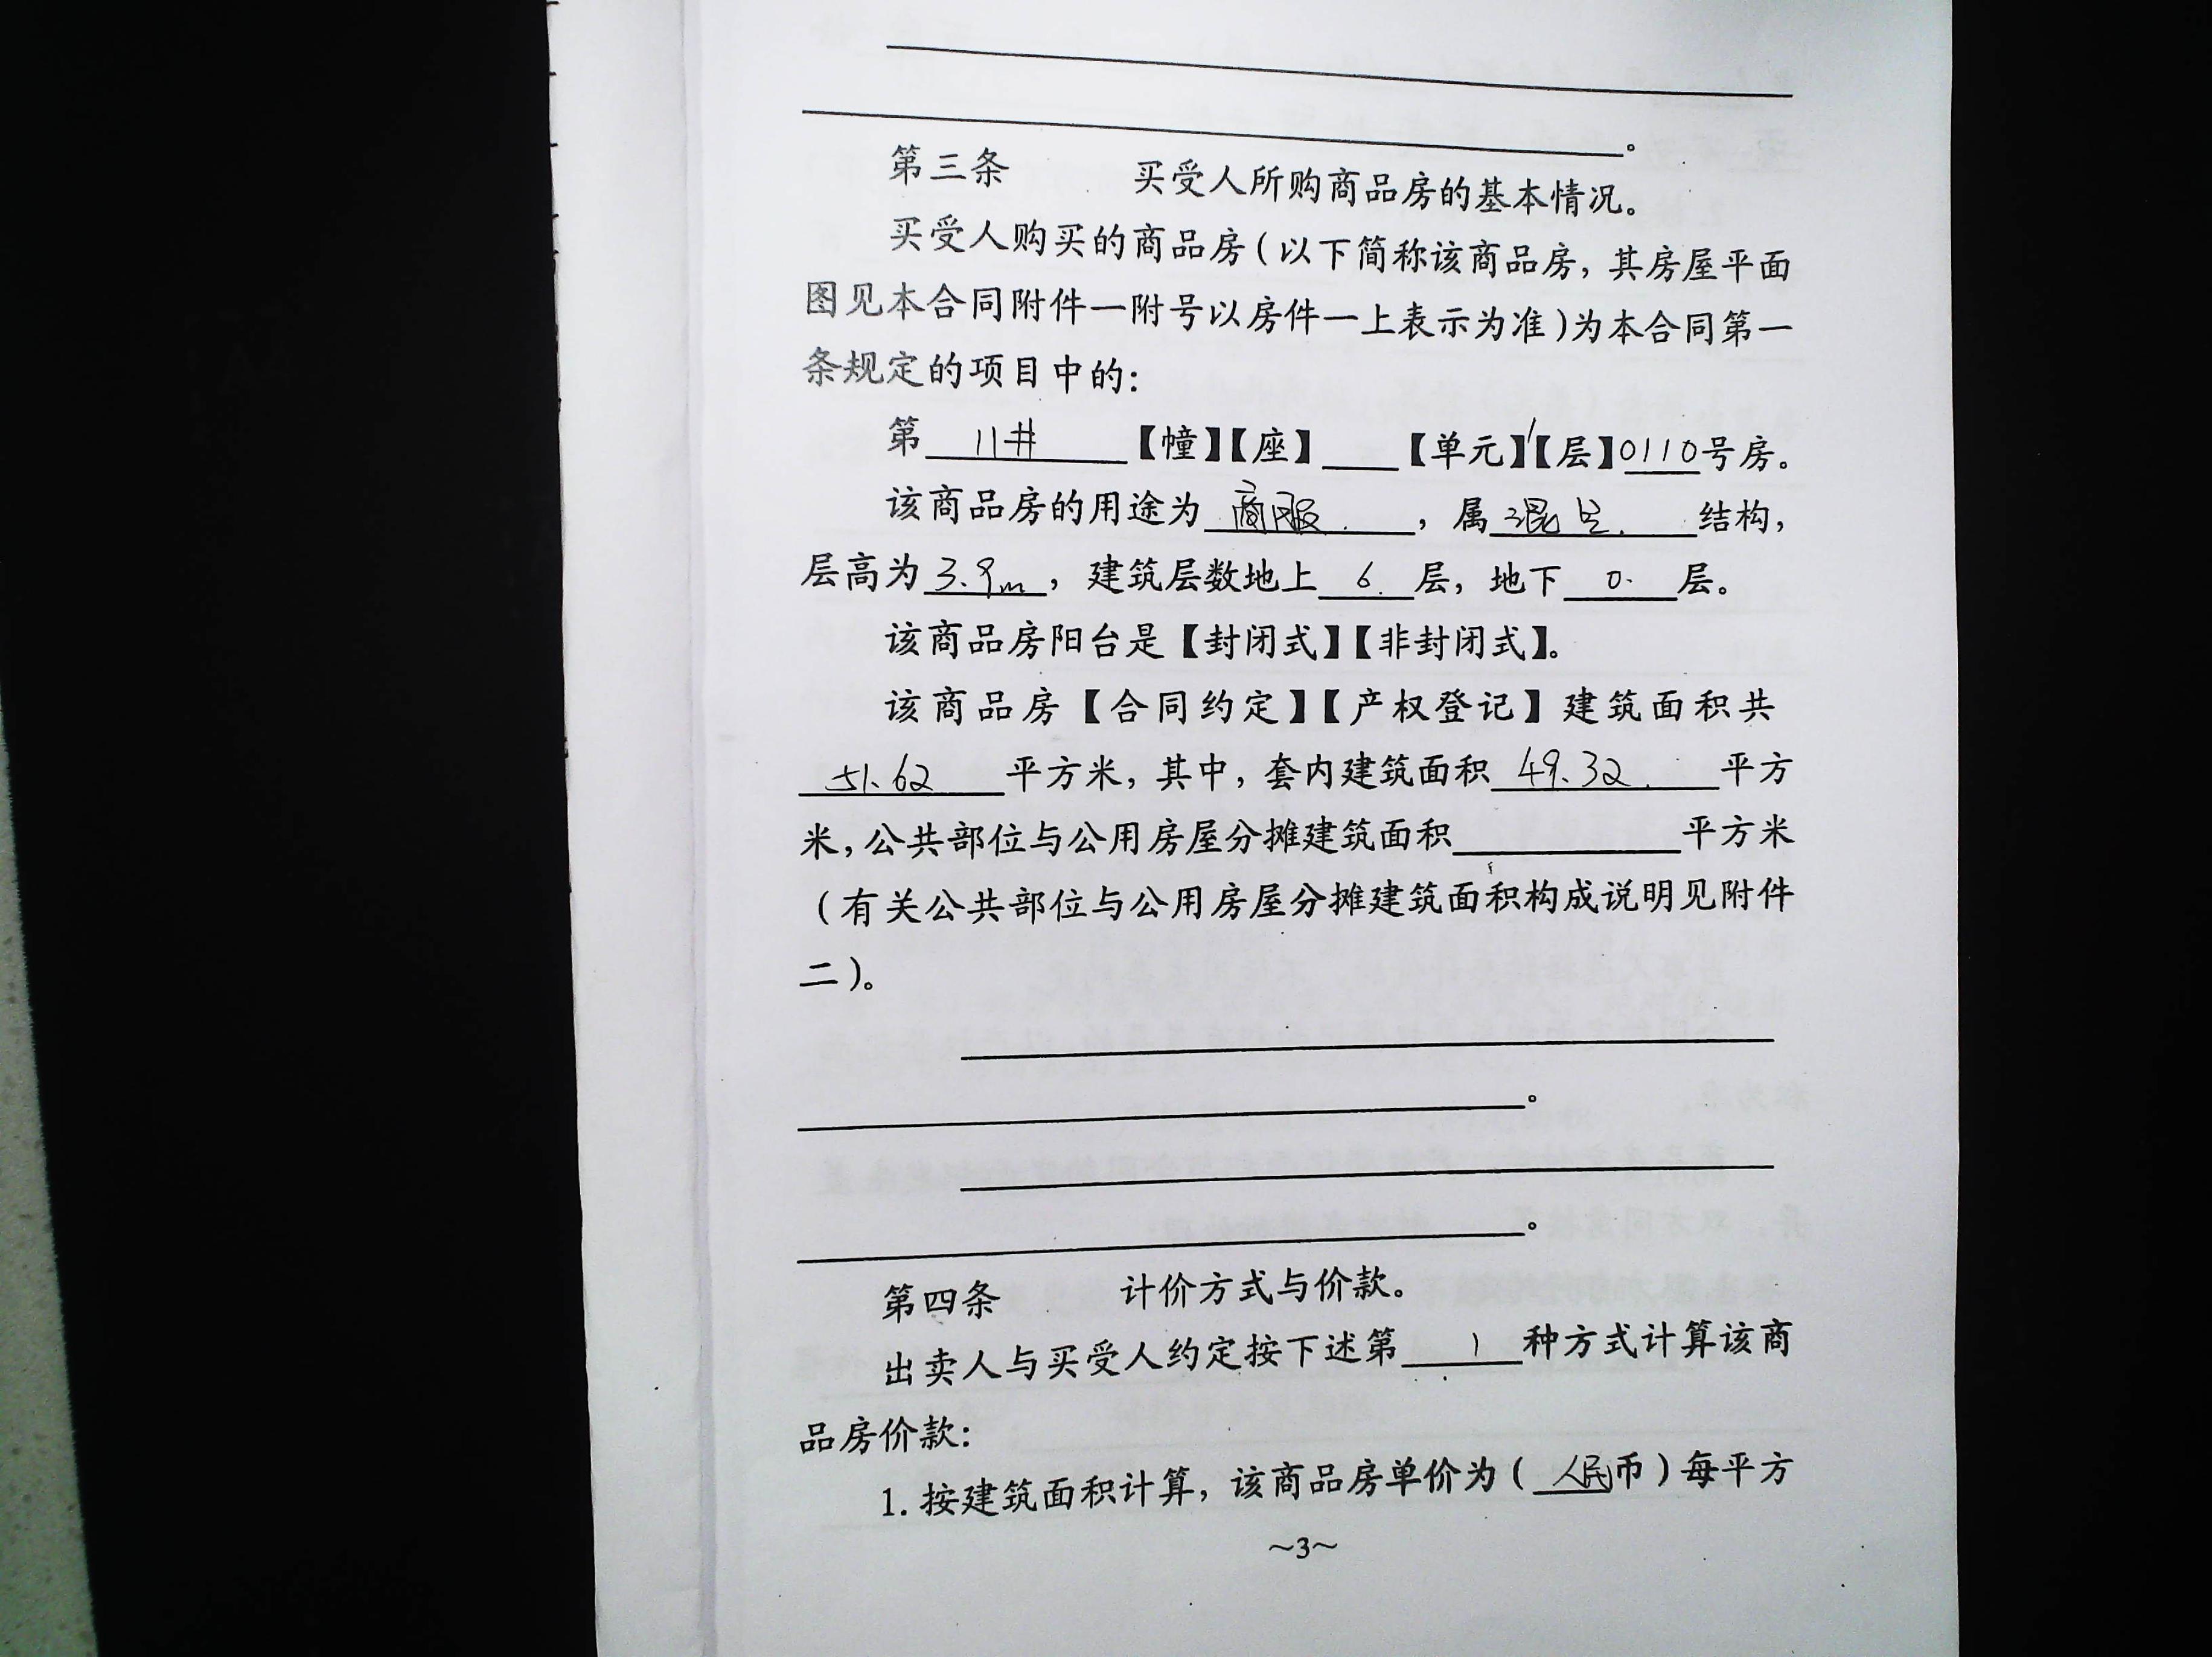 第三条 买受人所购商品房的基本情况。
买受人购买的商品房(以下简称该商品房,其房屋平面
图见本合同附件一附号以房件一上表示为准)为本合同第一
条规定的项目中的:
第 11# 【幢】【座】 【单元】1【层】0110号房。
该商品房的用途为 商服 ,属 混 结构,
层高为 3.9m ,建筑层数地上 6 层,地下 0 层。
该商品房阳台是【封闭式】【非封闭式】。
该商品房【合同约定】【产权登记】建筑面积共
51.62 平方米,其中,套内建筑面积 49.32 平方
米,公共部位与公用房屋分摊建筑面积 平方米
(有关公共部位与公用房屋分摊建筑面积构成说明见附件
二)。
第四条 计价方式与价款。
出卖人与买受人约定按下述第 1 种方式计算该商
品房价款:
1.按建筑面积计算,该商品房单价为( 人民币)每平方
~3~